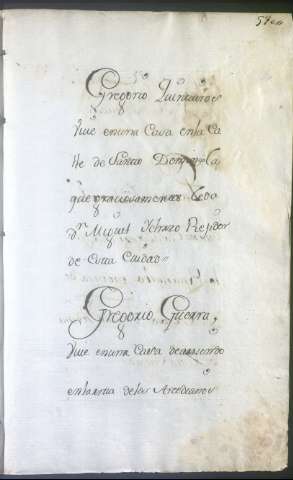 Gregorio Quintano
Viue en una Casa en la Ca
lle de Santo Domingo la
que graciosamente le da
Dn. Miguel
de esta Ciudad
Gregorio Guerra,
Viue en una Casa de arriendo
en la de los Arcedianos